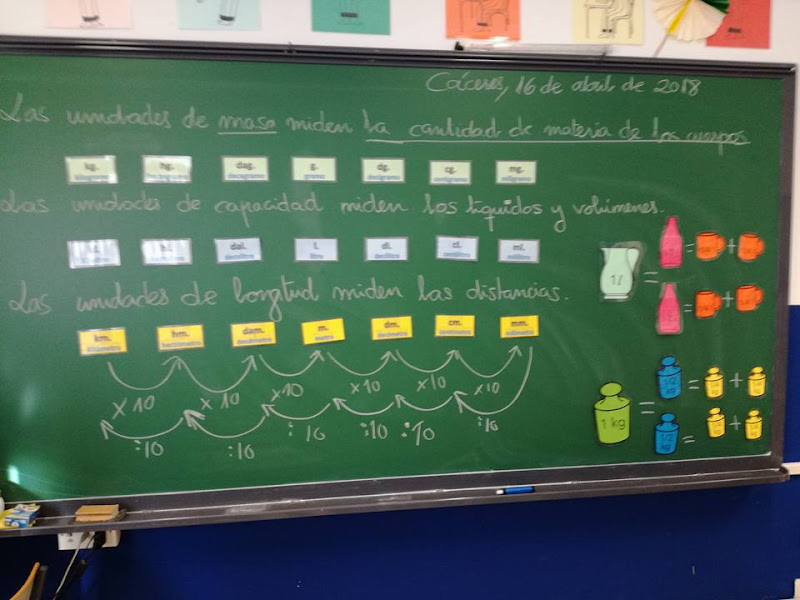 Cáceres, 16 de abril de 2018
Las unidades de masa miden la cantidad de materia de los cuerpos
kg. hg. dag. g. dg. cg. mg.
kilogramo hectogramo decagramo gramo decigramo centigramo miligramo
Las unidades de capacidad miden los líquidos y volúmenes.
hl. dal. l. dl. cl. ml.
litro decilitro centilitro mililitro
Las unidades de longitud miden las distancias.
km. hm. dam. m. dm. cm. mm.
kilómetro hectómetro decámetro metro decímetro centímetro milímetro
x10 x10 x10 x10 x10 x10
:10 :10 :10 :10 :10 :10
1l = = +
= +
1 kg = 1/2 kg = +
1/2 kg = +